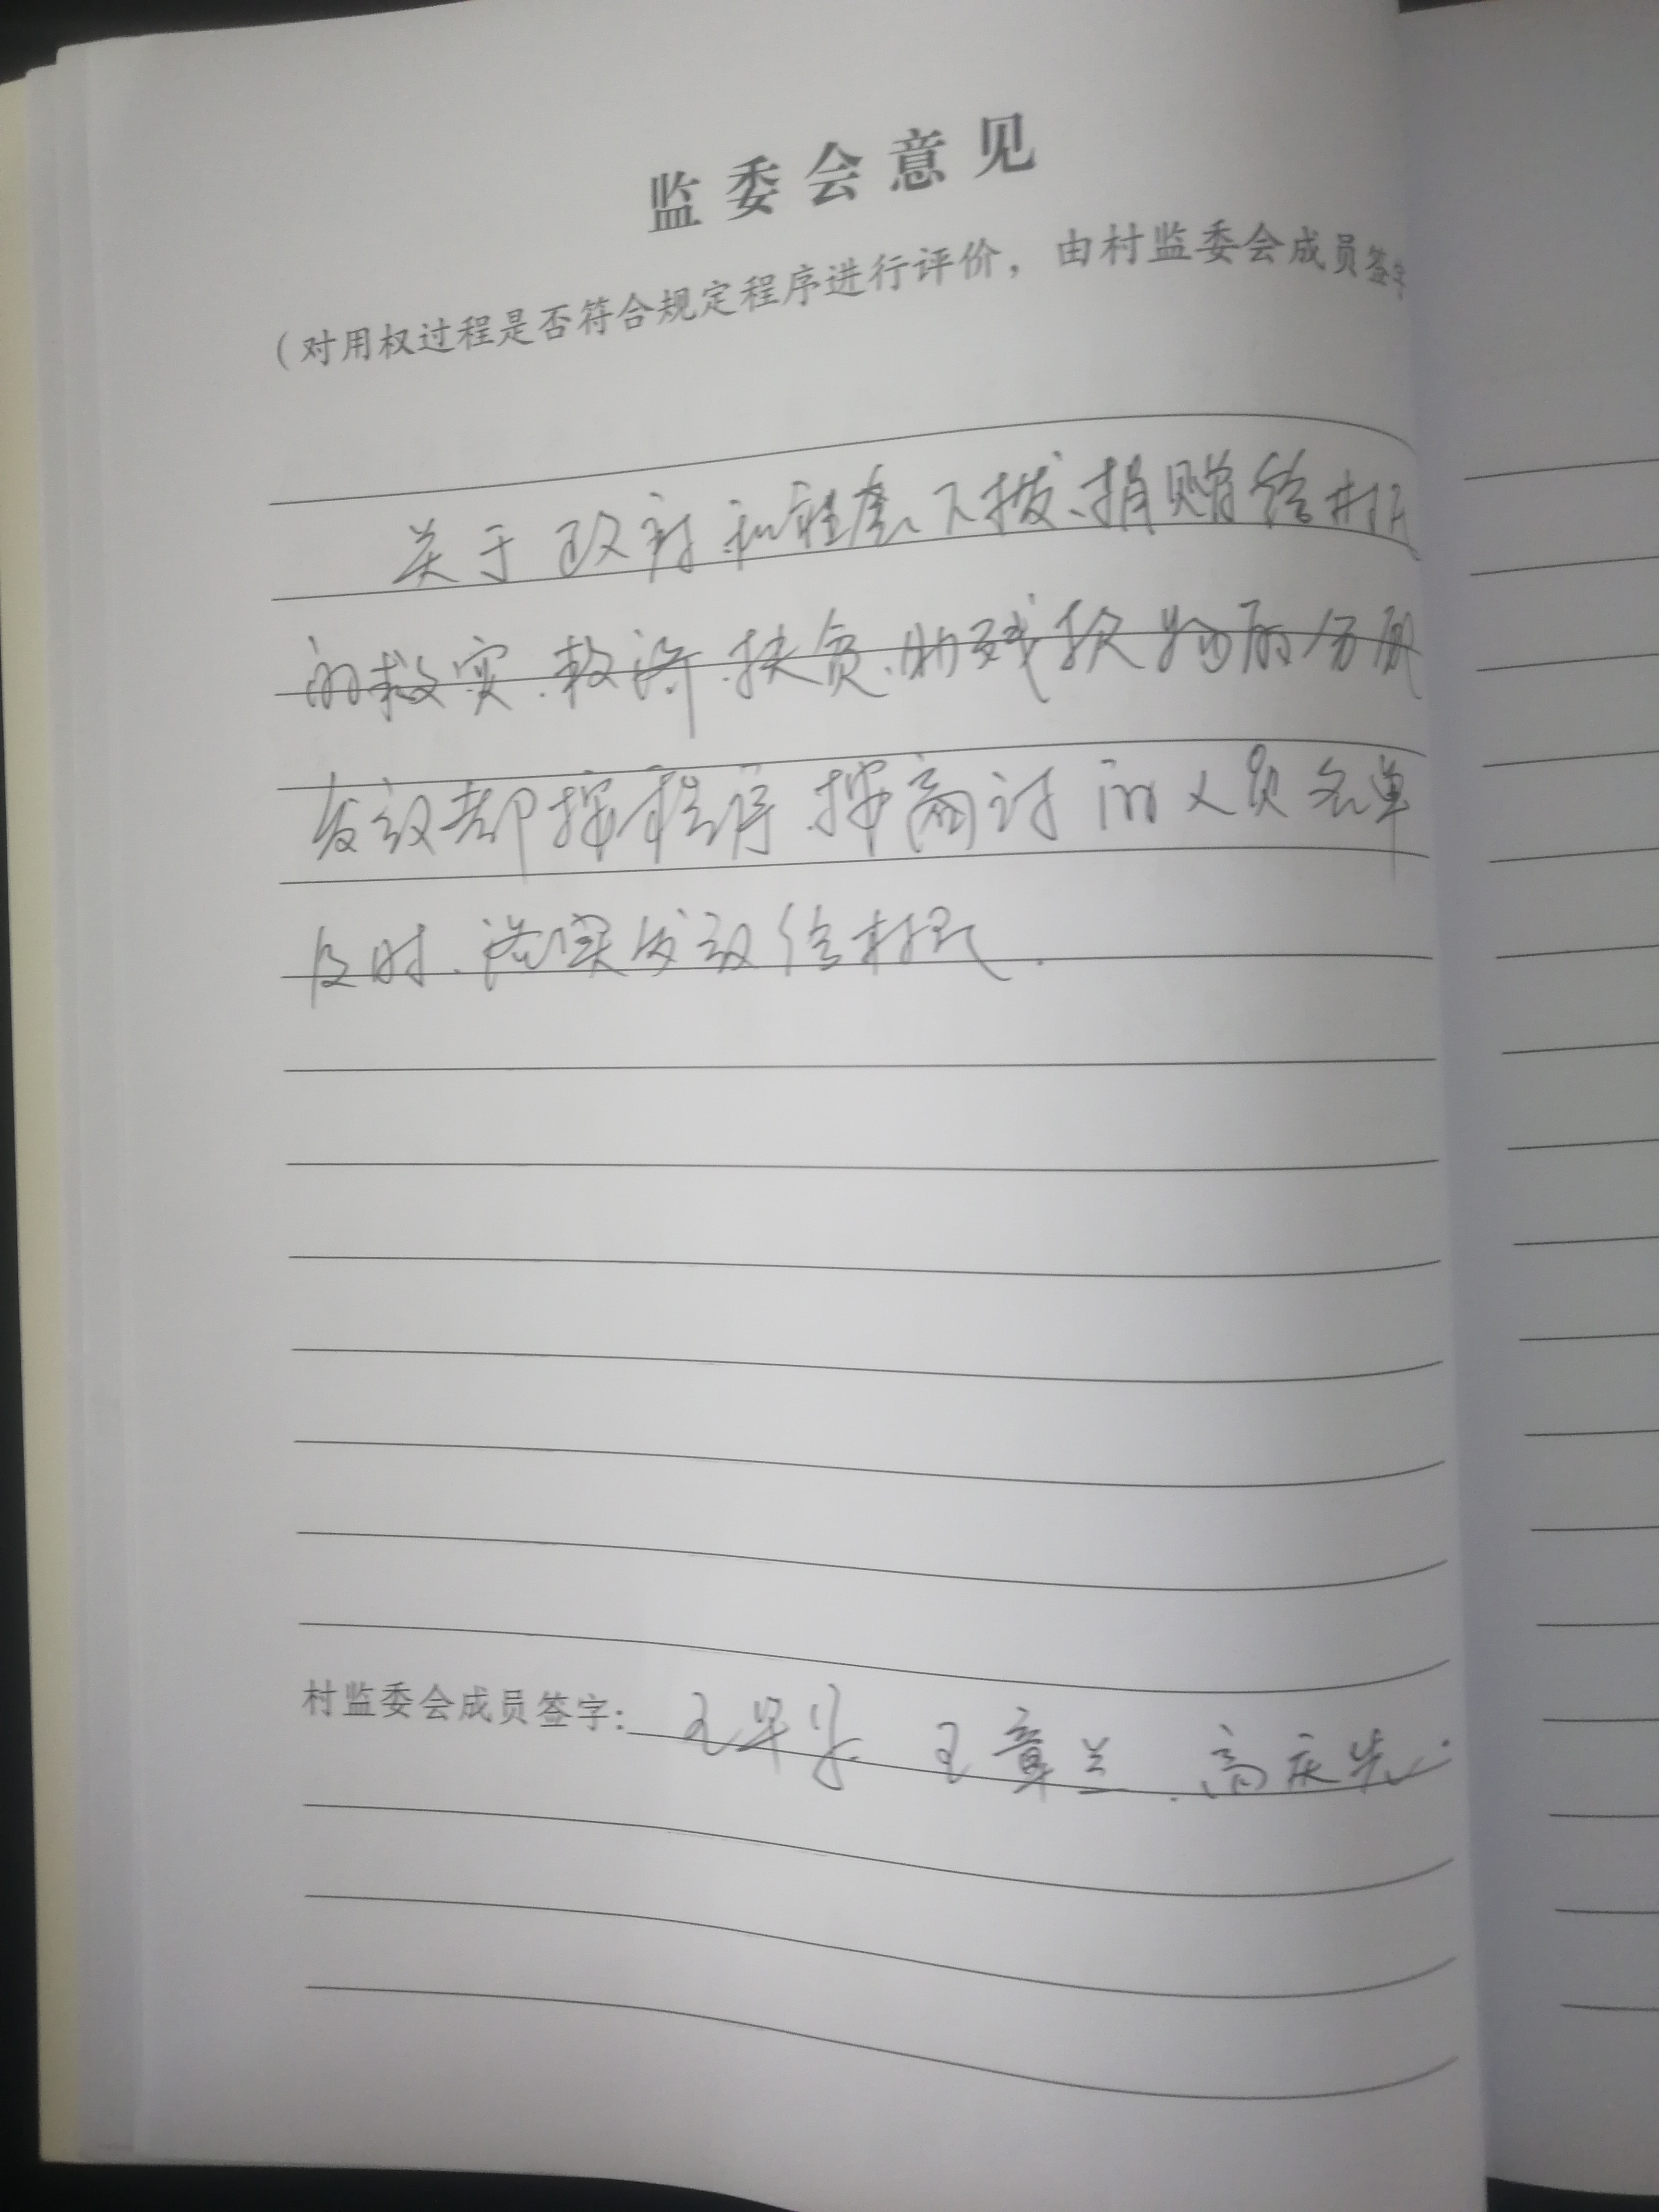 监委会意见
（对用权过程是否符合规定程序进行评价，由村监委会成员签字
关于政府和社会下拨、捐赠给村民
的救灾、救济、扶贫、助残款物的分配
发放都按程序按商讨的人员名单
及时、落实发放给村民.
村监委会成员签字: 王章兰 高庆先